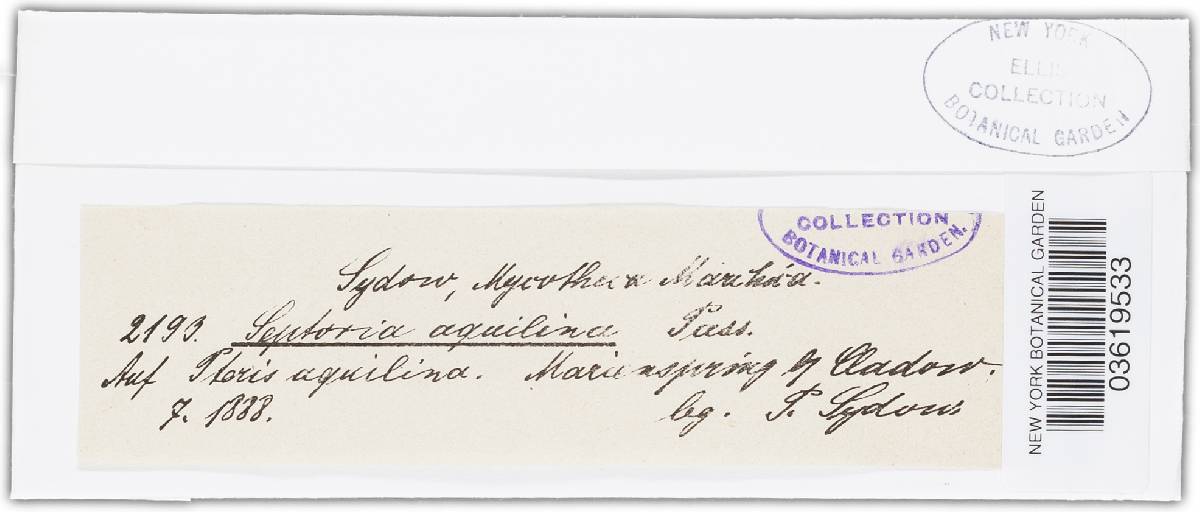 NEW YORK
ELLIS
COLLECTION
BOTANICAL GARDEN
COLLECTION
BOTANICAL GARDEN.
Sydow, Mycotheca Marchica.
2193. Septoria aquilina Pass.
Auf Pteris aquilina. Marienspring b/ Cladow.
7. 1888. leg. P. Sydow
NEW YORK BOTANICAL GARDEN
03619533